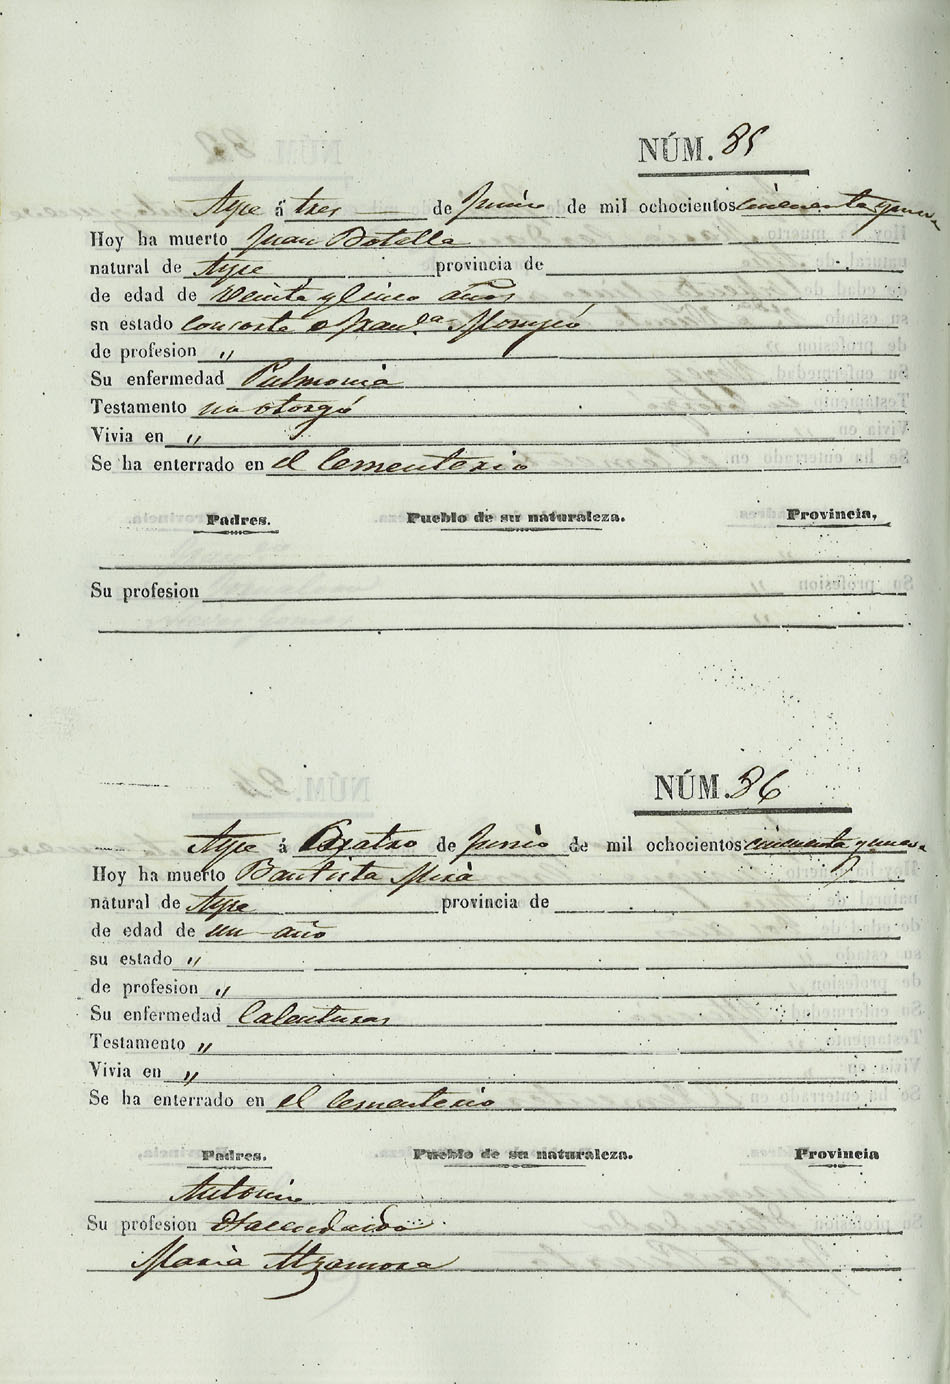 NÚM. 85
Aspe á tres de Junio de mil ochocientos cincuenta y nueve
Hoy ha muerto Juan Botella
natural de Aspe provincia de
de edad de Veinte y cinco años
sn estado consorte o Fran.ca
de profesion "
Su enfermedad Pulmonia
Testamento no otorgó
Vivia en "
Se ha enterrado en el Cementerio
Padres. Pueblo de su naturaleza. Provincia,
Su profesion
NÚM. 86
Aspe á Cuatro de Junio de mil ochocientos cincuenta y nueve
Hoy ha muerto Bautista Mirà
natural de Aspe provincia de
de edad de un año
su estado "
de profesion "
Su enfermedad Calenturas
Testamento "
Vivia en "
Se ha enterrado en el Cementerio
Padres. Pueblo de su naturaleza. Provincia
Antonio
Su profesion Hacendado
Maria Alzamora